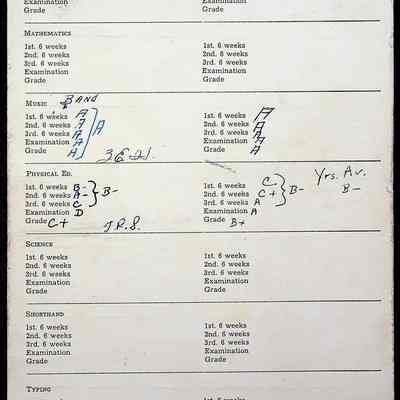 Examination Examination
Grade Grade
MATHEMATICS
1st. 6 weeks 1st. 6 weeks
2nd. 6 weeks 2nd. 6 weeks
3rd. 6 weeks 3rd. 6 weeks
Examination Examination
Grade Grade
MUSIC BAND
1st. 6 weeks A 1st. 6 weeks A
2nd. 6 weeks A 2nd. 6 weeks A
3rd. 6 weeks A A 3rd. 6 weeks A
Examination A Examination A
Grade A Grade A
PHYSICAL ED.
1st. 6 weeks B- 1st. 6 weeks C Yrs. Av.
2nd. 6 weeks A- B- 2nd. 6 weeks C+ B- B-
3rd. 6 weeks C 3rd. 6 weeks A
Examination D Examination A
Grade C+ J.R.S. Grade B+
SCIENCE
1st. 6 weeks 1st. 6 weeks
2nd. 6 weeks 2nd. 6 weeks
3rd. 6 weeks 3rd. 6 weeks
Examination Examination
Grade Grade
SHORTHAND
1st. 6 weeks 1st. 6 weeks
2nd. 6 weeks 2nd. 6 weeks
3rd. 6 weeks 3rd. 6 weeks
Examination Examination
Grade Grade
TYPING
1st. 6 weeks